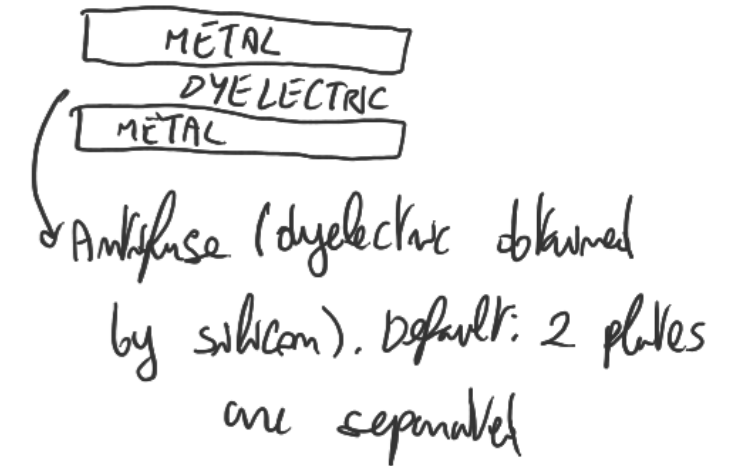 METAL
DYELECTRIC
METAL
Antifuse (dyelectric obtained
by silicon). Default: 2 plates
are separated